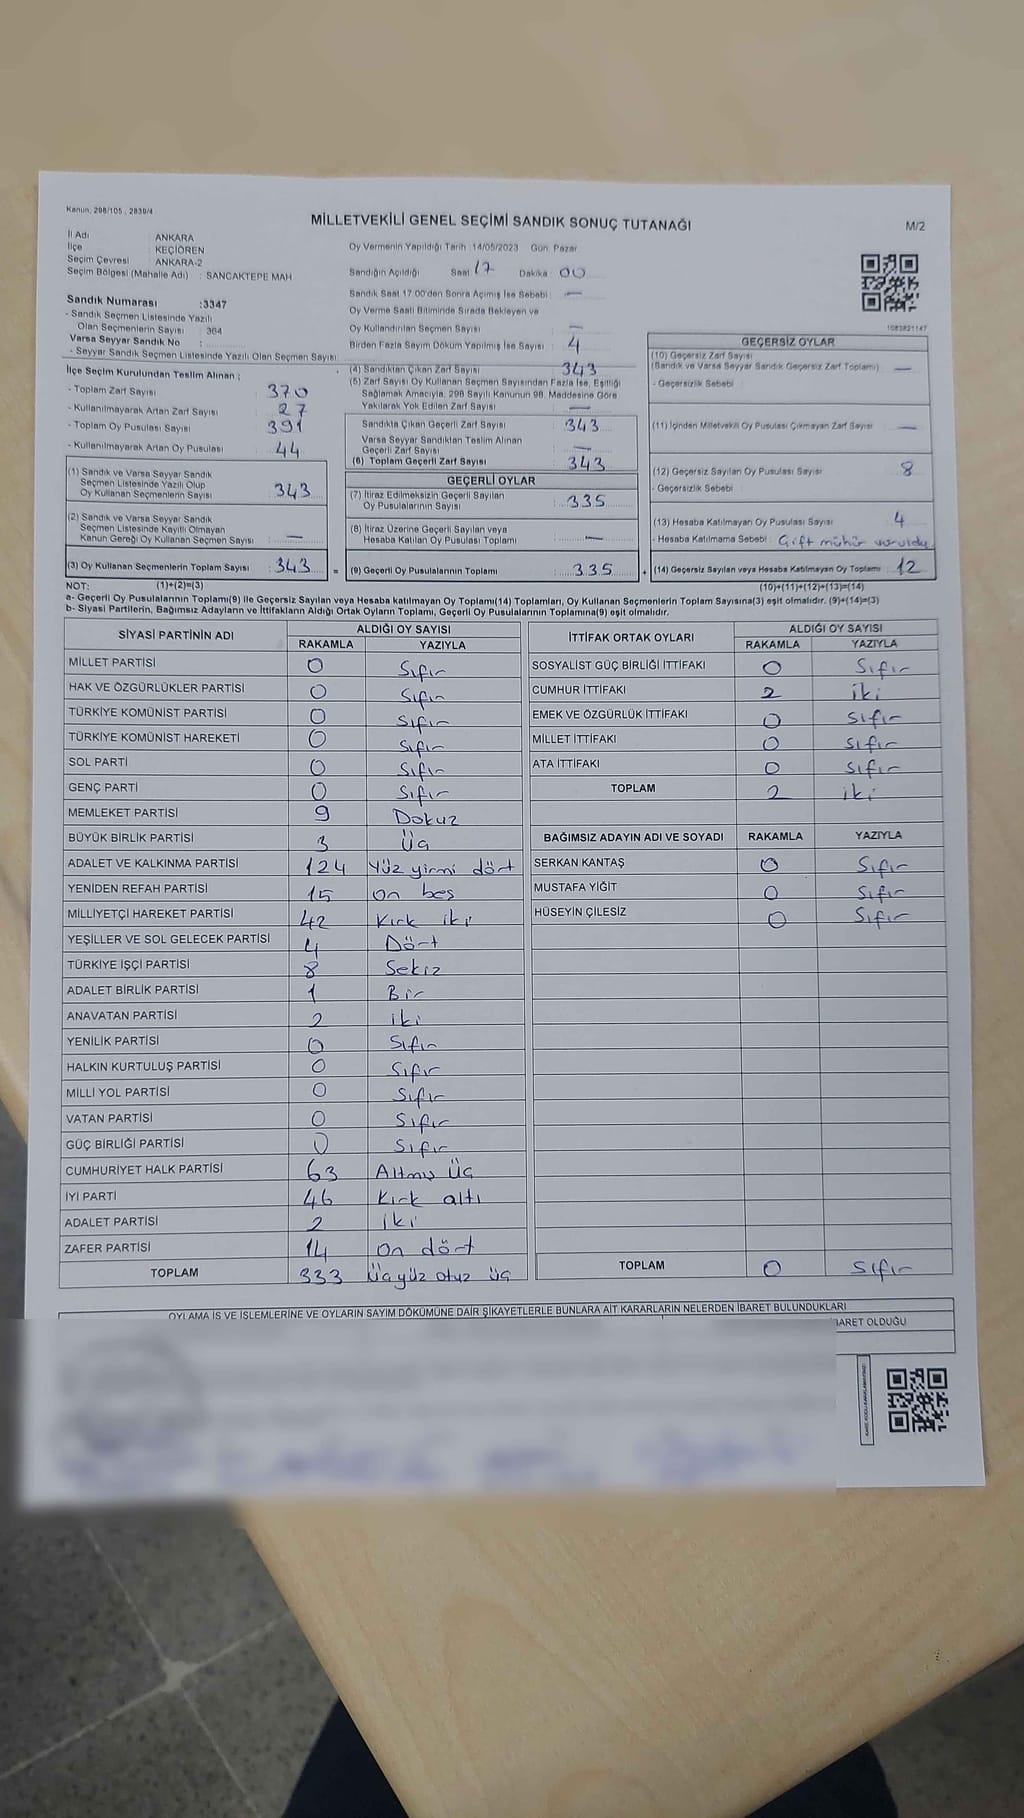 Kanun: 298/105 , 2839/4
MİLLETVEKİLİ GENEL SEÇİMİ SANDIK SONUÇ TUTANAĞI
M/2
İl Adı : ANKARA
İlçe : KEÇİÖREN
Seçim Çevresi : ANKARA-2
Seçim Bölgesi (Mahalle Adı) : SANCAKTEPE MAH
Oy Vermenin Yapıldığı Tarih :14/05/2023 Gün: Pazar
Sandığın Açıldığı Saat 17 Dakika 00
Sandık Saat 17:00'den Sonra Açımış İse Sebebi : —
Oy Verme Saati Bitiminde Sırada Bekleyen ve
Oy Kullandırılan Seçmen Sayısı : —
Birden Fazla Sayım Döküm Yapılmış İse Sayısı : 4
1083821147
Sandık Numarası :3347
- Sandık Seçmen Listesinde Yazılı
Olan Seçmenlerin Sayısı : 364
Varsa Seyyar Sandık No :
- Seyyar Sandık Seçmen Listesinde Yazılı Olan Seçmen Sayısı:
İlçe Seçim Kurulundan Teslim Alınan ;
- Toplam Zarf Sayısı : 370
- Kullanılmayarak Artan Zarf Sayısı : 27
- Toplam Oy Pusulası Sayısı : 391
- Kullanılmayarak Artan Oy Pusulası : 44
(1) Sandık ve Varsa Seyyar Sandık
Seçmen Listesinde Yazılı Olup
Oy Kullanan Seçmenlerin Sayısı : 343
(2) Sandık ve Varsa Seyyar Sandık
Seçmen Listesinde Kayıtlı Olmayan
Kanun Gereği Oy Kullanan Seçmen Sayısı : —
(3) Oy Kullanan Seçmenlerin Toplam Sayısı : 343
(4) Sandıktan Çıkan Zarf Sayısı : 343
(5) Zarf Sayısı Oy Kullanan Seçmen Sayısından Fazla İse, Eşitliği
Sağlamak Amacıyla, 298 Sayılı Kanunun 98. Maddesine Göre
Yakılarak Yok Edilen Zarf Sayısı : —
Sandıkta Çıkan Geçerli Zarf Sayısı : 343
Varsa Seyyar Sandıktan Teslim Alınan
Geçerli Zarf Sayısı : —
(6) Toplam Geçerli Zarf Sayısı : 343
GEÇERLİ OYLAR
(7) İtiraz Edilmeksizin Geçerli Sayılan
Oy Pusulalarının Sayısı : 335
(8) İtiraz Üzerine Geçerli Sayılan veya
Hesaba Katılan Oy Pusulası Toplamı : —
= (9) Geçerli Oy Pusulalarının Toplamı : 335 +
GEÇERSİZ OYLAR
(10) Geçersiz Zarf Sayısı
(Sandık ve Varsa Seyyar Sandık Geçersiz Zarf Toplamı) : —
- Geçersizlik Sebebi :
(11) İçinden Milletvekili Oy Pusulası Çıkmayan Zarf Sayısı : —
(12) Geçersiz Sayılan Oy Pusulası Sayısı : 8
- Geçersizlik Sebebi :
(13) Hesaba Katılmayan Oy Pusulası Sayısı : 4
- Hesaba Katılmama Sebebi : Çift mühür vuruldu
(14) Geçersiz Sayılan veya Hesaba Katılmayan Oy Toplamı : 12
NOT: (1)+(2)=(3) (10)+(11)+(12)+(13)=(14)
a- Geçerli Oy Pusulalarının Toplamı(9) ile Geçersiz Sayılan veya Hesaba katılmayan Oy Toplamı(14) Toplamları, Oy Kullanan Seçmenlerin Toplam Sayısına(3) eşit olmalıdır. (9)+(14)=(3)
b- Siyasi Partilerin, Bağımsız Adayların ve İttifakların Aldığı Ortak Oyların Toplamı, Geçerli Oy Pusulalarının Toplamına(9) eşit olmalıdır.
SİYASİ PARTİNİN ADI ALDIĞI OY SAYISI
RAKAMLA YAZIYLA
MİLLET PARTİSİ 0 Sıfır
HAK VE ÖZGÜRLÜKLER PARTİSİ 0 Sıfır
TÜRKİYE KOMÜNİST PARTİSİ 0 Sıfır
TÜRKİYE KOMÜNİST HAREKETİ 0 Sıfır
SOL PARTİ 0 Sıfır
GENÇ PARTİ 0 Sıfır
MEMLEKET PARTİSİ 9 Dokuz
BÜYÜK BİRLİK PARTİSİ 3 Üç
ADALET VE KALKINMA PARTİSİ 124 Yüz yirmi dört
YENİDEN REFAH PARTİSİ 15 On beş
MİLLİYETÇİ HAREKET PARTİSİ 42 Kırk iki
YEŞİLLER VE SOL GELECEK PARTİSİ 4 Dört
TÜRKİYE İŞÇİ PARTİSİ 8 Sekiz
ADALET BİRLİK PARTİSİ 1 Bir
ANAVATAN PARTİSİ 2 iki
YENİLİK PARTİSİ 0 Sıfır
HALKIN KURTULUŞ PARTİSİ 0 Sıfır
MİLLİ YOL PARTİSİ 0 Sıfır
VATAN PARTİSİ 0 Sıfır
GÜÇ BİRLİĞİ PARTİSİ 0 Sıfır
CUMHURİYET HALK PARTİSİ 63 Altmış Üç
İYİ PARTİ 46 Kırk altı
ADALET PARTİSİ 2 iki
ZAFER PARTİSİ 14 on dört
TOPLAM 333 Üçyüz otuz üç
İTTİFAK ORTAK OYLARI ALDIĞI OY SAYISI
RAKAMLA YAZIYLA
SOSYALİST GÜÇ BİRLİĞİ İTTİFAKI 0 Sıfır
CUMHUR İTTİFAKI 2 iki
EMEK VE ÖZGÜRLÜK İTTİFAKI 0 Sıfır
MİLLET İTTİFAKI 0 Sıfır
ATA İTTİFAKI 0 Sıfır
TOPLAM 2 iki
BAĞIMSIZ ADAYIN ADI VE SOYADI RAKAMLA YAZIYLA
SERKAN KANTAŞ 0 Sıfır
MUSTAFA YİĞİT 0 Sıfır
HÜSEYİN ÇİLESİZ 0 Sıfır
TOPLAM 0 Sıfır
OYLAMA İŞ VE İŞLEMLERİNE VE OYLARIN SAYIM DÖKÜMÜNE DAİR ŞİKAYETLERLE BUNLARA AİT KARARLARIN NELERDEN İBARET BULUNDUKLARI
İBARET OLDUĞU